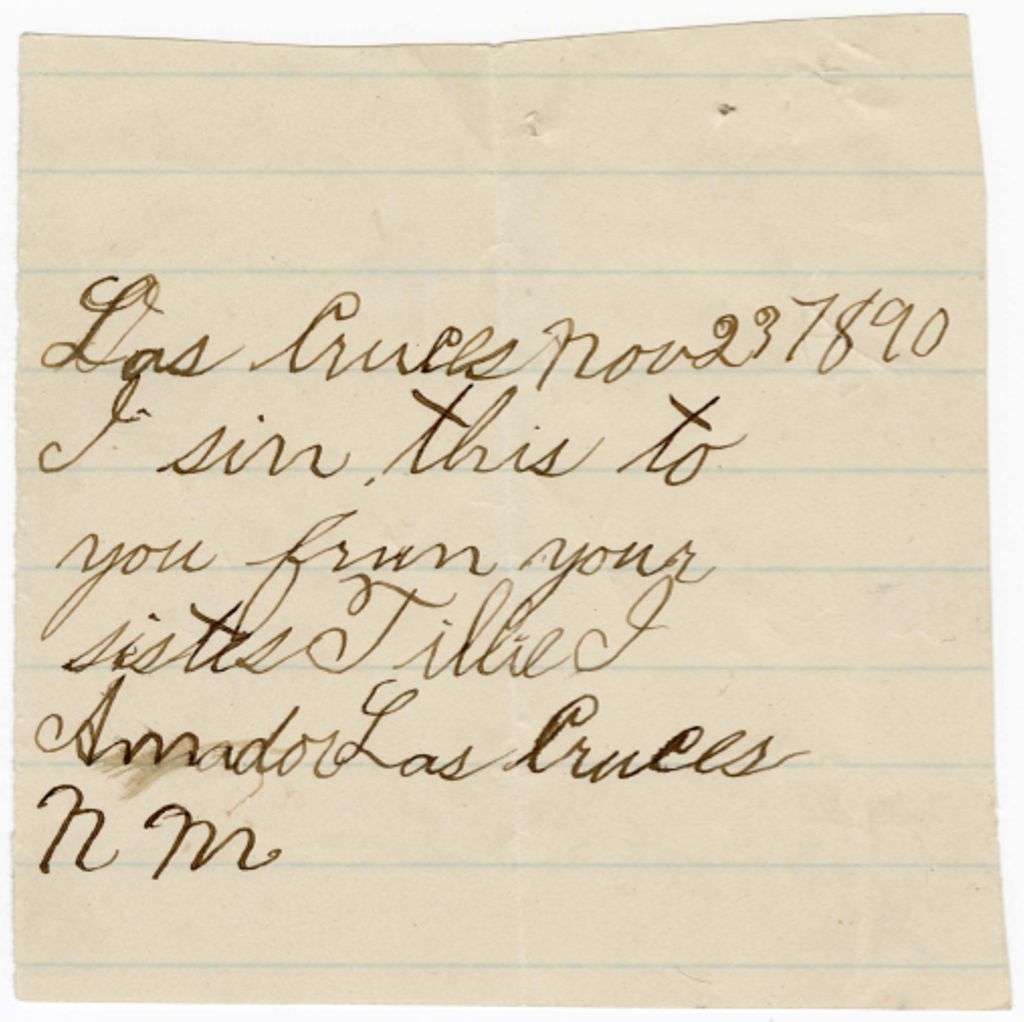 Las Cruces Nov 23 1890
I sin this to
you frum your
sister Tillie I
Amador Las Cruces
N M